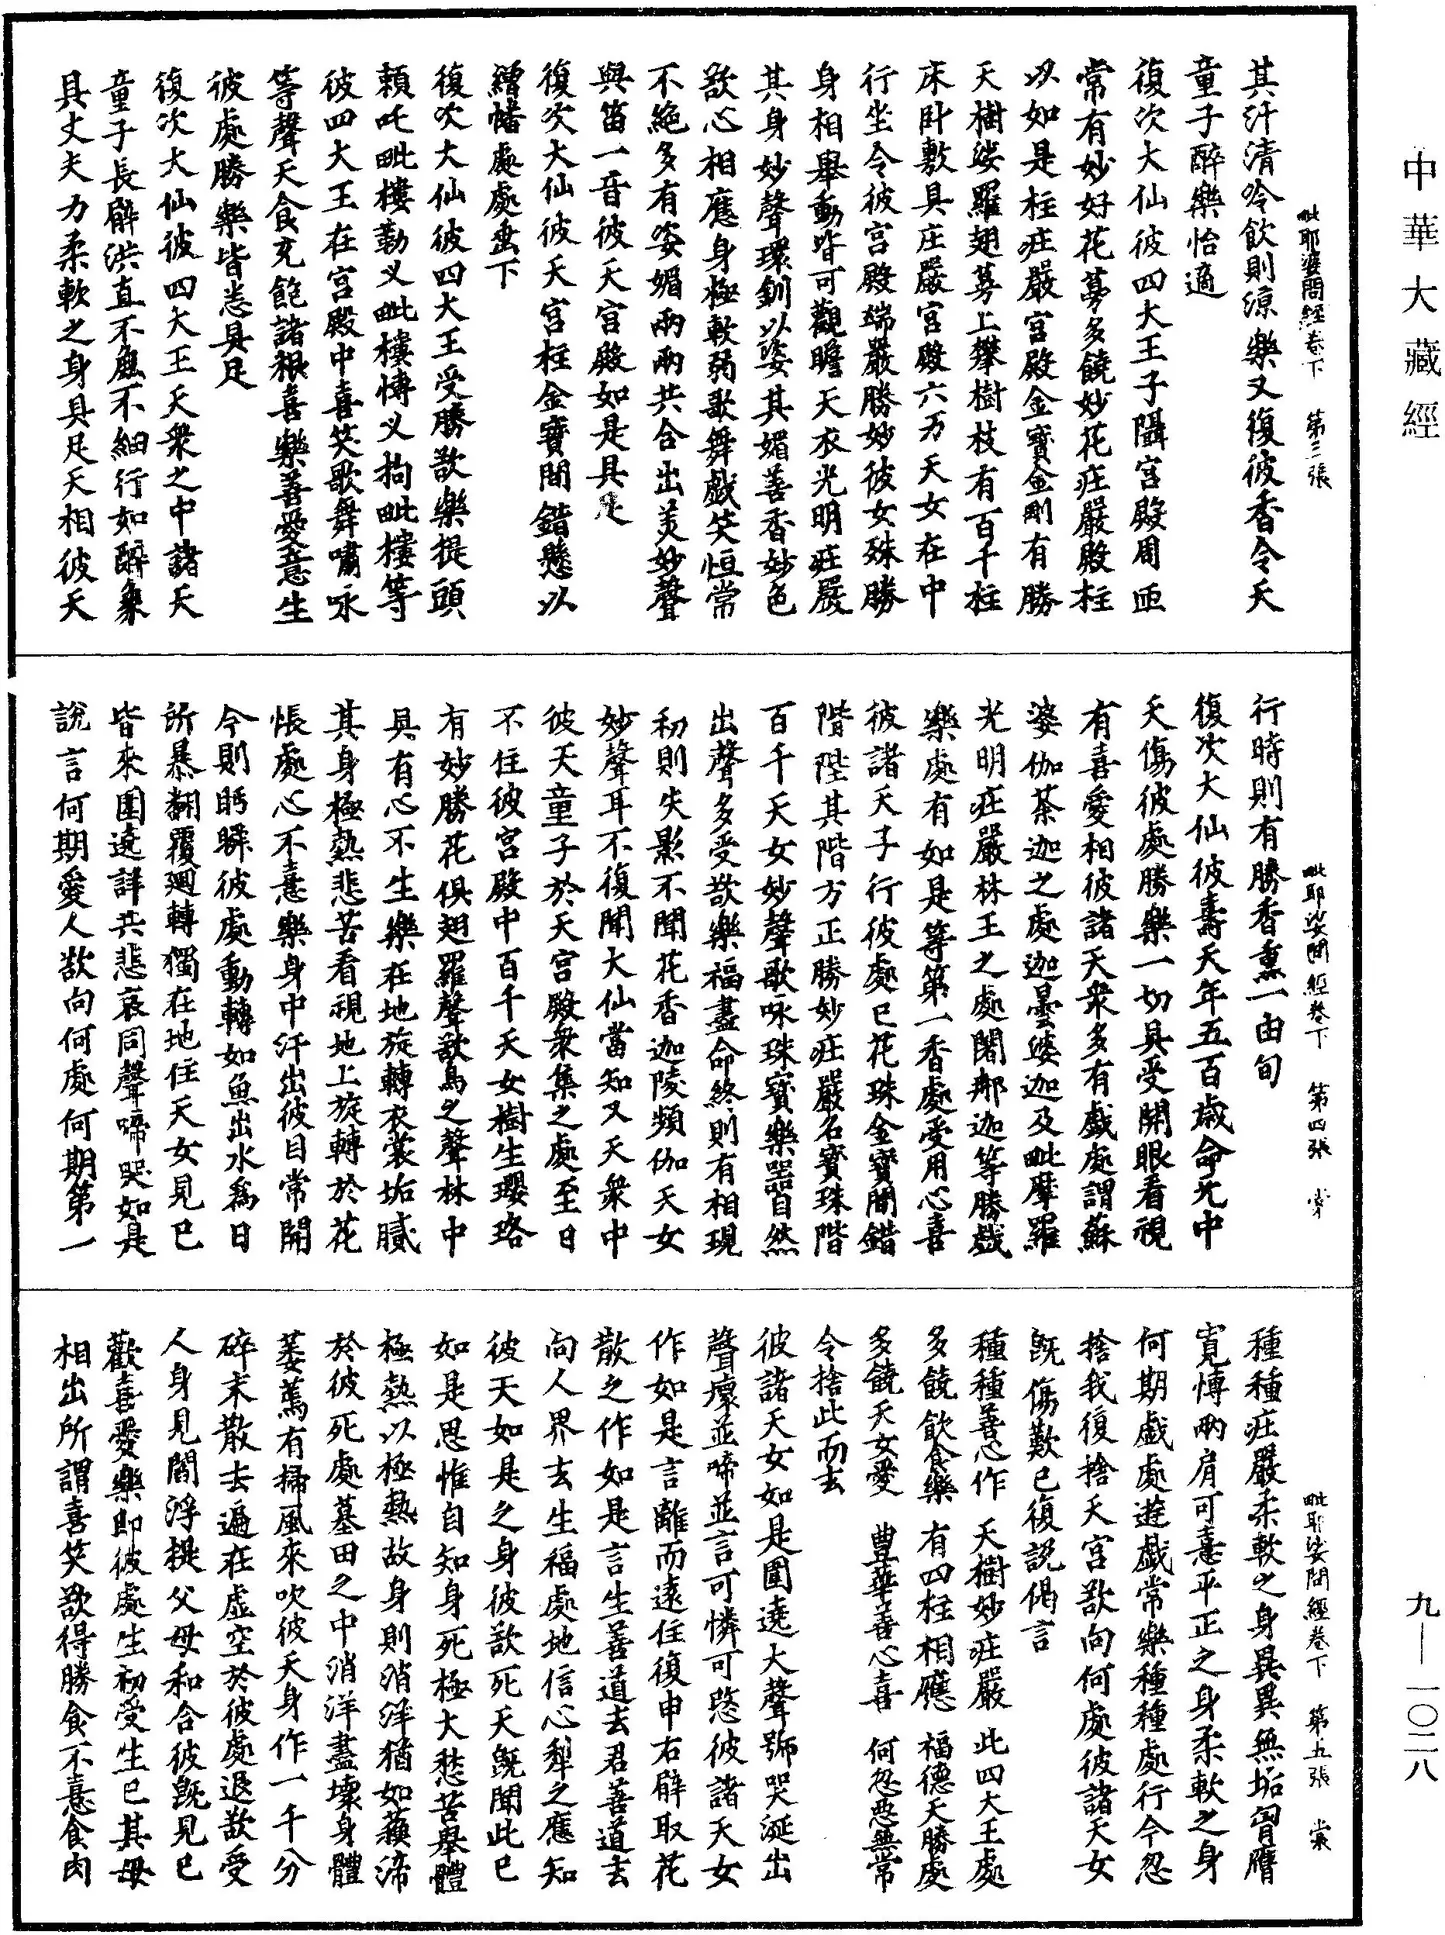 中華大藏經
九—一〇二八
毗耶婆問經卷下 第三張
其汁清冷飲則涼樂又復彼香令天
童子醉樂怡適
復次大仙彼四大王子隔宮殿周匝
常有妙好花蔓多饒妙花莊嚴殿柱
以如是柱莊嚴宮殿金寶金剛有勝
天樹娑羅翅蔓上攀樹枝有百千柱
床臥敷具庄嚴宮殿六万天女在中
行坐令彼宮殿端嚴勝妙彼女殊勝
身相舉動皆可觀瞻天衣光明莊嚴
其身妙聲環釧以姿其媚善香妙色
欲心相應身極軟弱歌舞戲笑恒常
不絕多有姿媚兩兩共合出美妙聲
與笛一音彼天宮殿如是具足
復次大仙彼天宮柱金寶間錯懸以
繒幡處處垂下
復次大仙彼四大王受勝欲樂提頭
賴吒毗樓勒叉毗樓博叉拘毗樓等
彼四大王在宮殿中喜笑歌舞嘯咏
等聲天食充飽諸根喜樂善愛意生
彼處勝樂皆悉具足
復次大仙彼四大王天衆之中諸天
童子長髀洪直不麁不細行如醉象
具丈夫力柔軟之身具足天相彼天
毗耶娑問經卷下 第四張
行時則有勝香熏一由旬
復次大仙彼壽天年五百歲命无中
夭傷彼處勝樂一切具受開眼看視
有喜愛相彼諸天衆多有戲處謂蘇
婆伽荼迦之處迦曇婆迦及毗摩羅
光明庄嚴林王之處闍那迦等勝戲
樂處有如是等第一香處受用心喜
彼諸天子行彼處已花珠金寶間錯
階陛其階方正勝妙莊嚴名寶珠階
百千天女妙聲歌咏珠寶樂器自然
出聲多受欲樂福盡命終則有相現
初則失影不聞花香迦陵頻伽天女
妙聲耳不復聞大仙當知又天衆中
彼天童子於天宮殿衆集之處至日
不住彼宮殿中百千天女樹生瓔珞
有妙勝花俱翅羅聲歌鳥之聲林中
具有心不生樂在地旋轉衣裳垢膩
其身極熱悲苦看視地上旋轉於花
悵處心不意樂身中汗出彼目常開
今則眄瞬彼處動轉如魚出水為日
所暴翻覆迴轉獨在地住天女見已
皆來圍遶詳共悲哀同聲啼哭如是
說言何期愛人欲向何處何期第一
毗耶娑問經卷下 第五張
種種莊嚴柔軟之身異異無垢胷膺
寬慱兩肩可憙平正之身柔軟之身
何期戲處遊戲常樂種種處行今忽
捨我復捨天宮欲向何處彼諸天女
旣傷歎已復說偈言
種種善心作 天樹妙莊嚴 此四大王處
多饒飲食樂 有四柱相應 福德天勝處
多饒天女愛 豊華善心喜 何忽惡無常
令捨此而去
彼諸天女如是圍遶大聲號哭涎出
聲壞並啼並言可憐可愍彼諸天女
作如是言離而遠住復申右臂取花
散之作如是言生善道去君善道去
向人界去生福處地信心犁之應知
彼天如是之身彼欲死天旣聞此已
如是思惟自知身死極大愁苦舉體
極熱以極熱故身則消洋猶如蘋渧
於彼死處墓田之中消洋盡壞身體
萎蔫有掃風來吹彼天身作一千分
碎末散去遍在虛空於彼處退欲受
人身見閻浮提父母和合彼旣見已
歡喜愛樂即彼處生初受生已其母
相出所謂喜笑欲得勝食不憙食肉